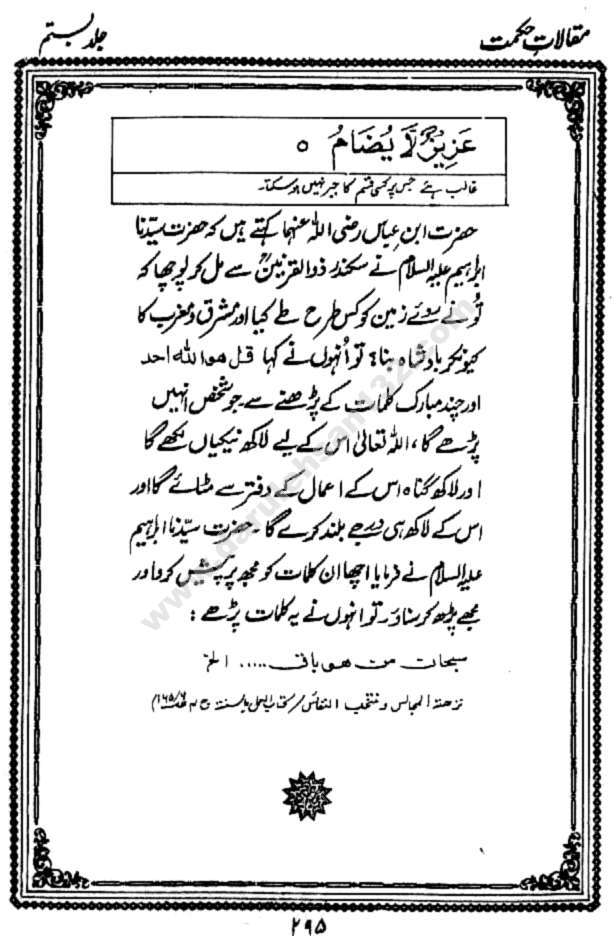 مقالاتِ حکمت
جلد بستم
عَزِيزٌ لَّا يُضَامُ ٥
غالب ہے جس پر کسی قسم کا جبر نہیں ہو سکتا۔
حضرت ابن عباس رضی اللہ عنہما کہتے ہیں کہ حضرت سیّدنا
ابراہیم علیہ السلام نے سکندر ذوالقرنین سے مل کر پوچھا کہ
تُو نے روئے زمین کو کس طرح طے کیا اور مشرق و مغرب کا
کیونکر بادشاہ بنا؟ تو اُنہوں نے کہا قل هو الله احد
اور چند مبارک کلمات کے پڑھنے سے۔ جو شخص انہیں
پڑھے گا، اللہ تعالیٰ اس کے لیے لاکھ نیکیاں لکھے گا
اور لاکھ گناہ اس کے اعمال کے دفتر سے مٹائے گا اور
اس کے لاکھ ہی درجے بلند کرے گا۔ حضرت سیّدنا ابراہیم
علیہ السلام نے فرمایا اچھا ان کلمات کو مجھ پر پیش کرو اور
مجھے پڑھ کر سناؤ۔ تو انہوں نے یہ کلمات پڑھے :
سبحان من هو باق ..... الخ
نزہتہ المجالس و منتخب النفائس / کتاب العمل بالسنۃ ج
۲۹۵
www.darulehsan132.com